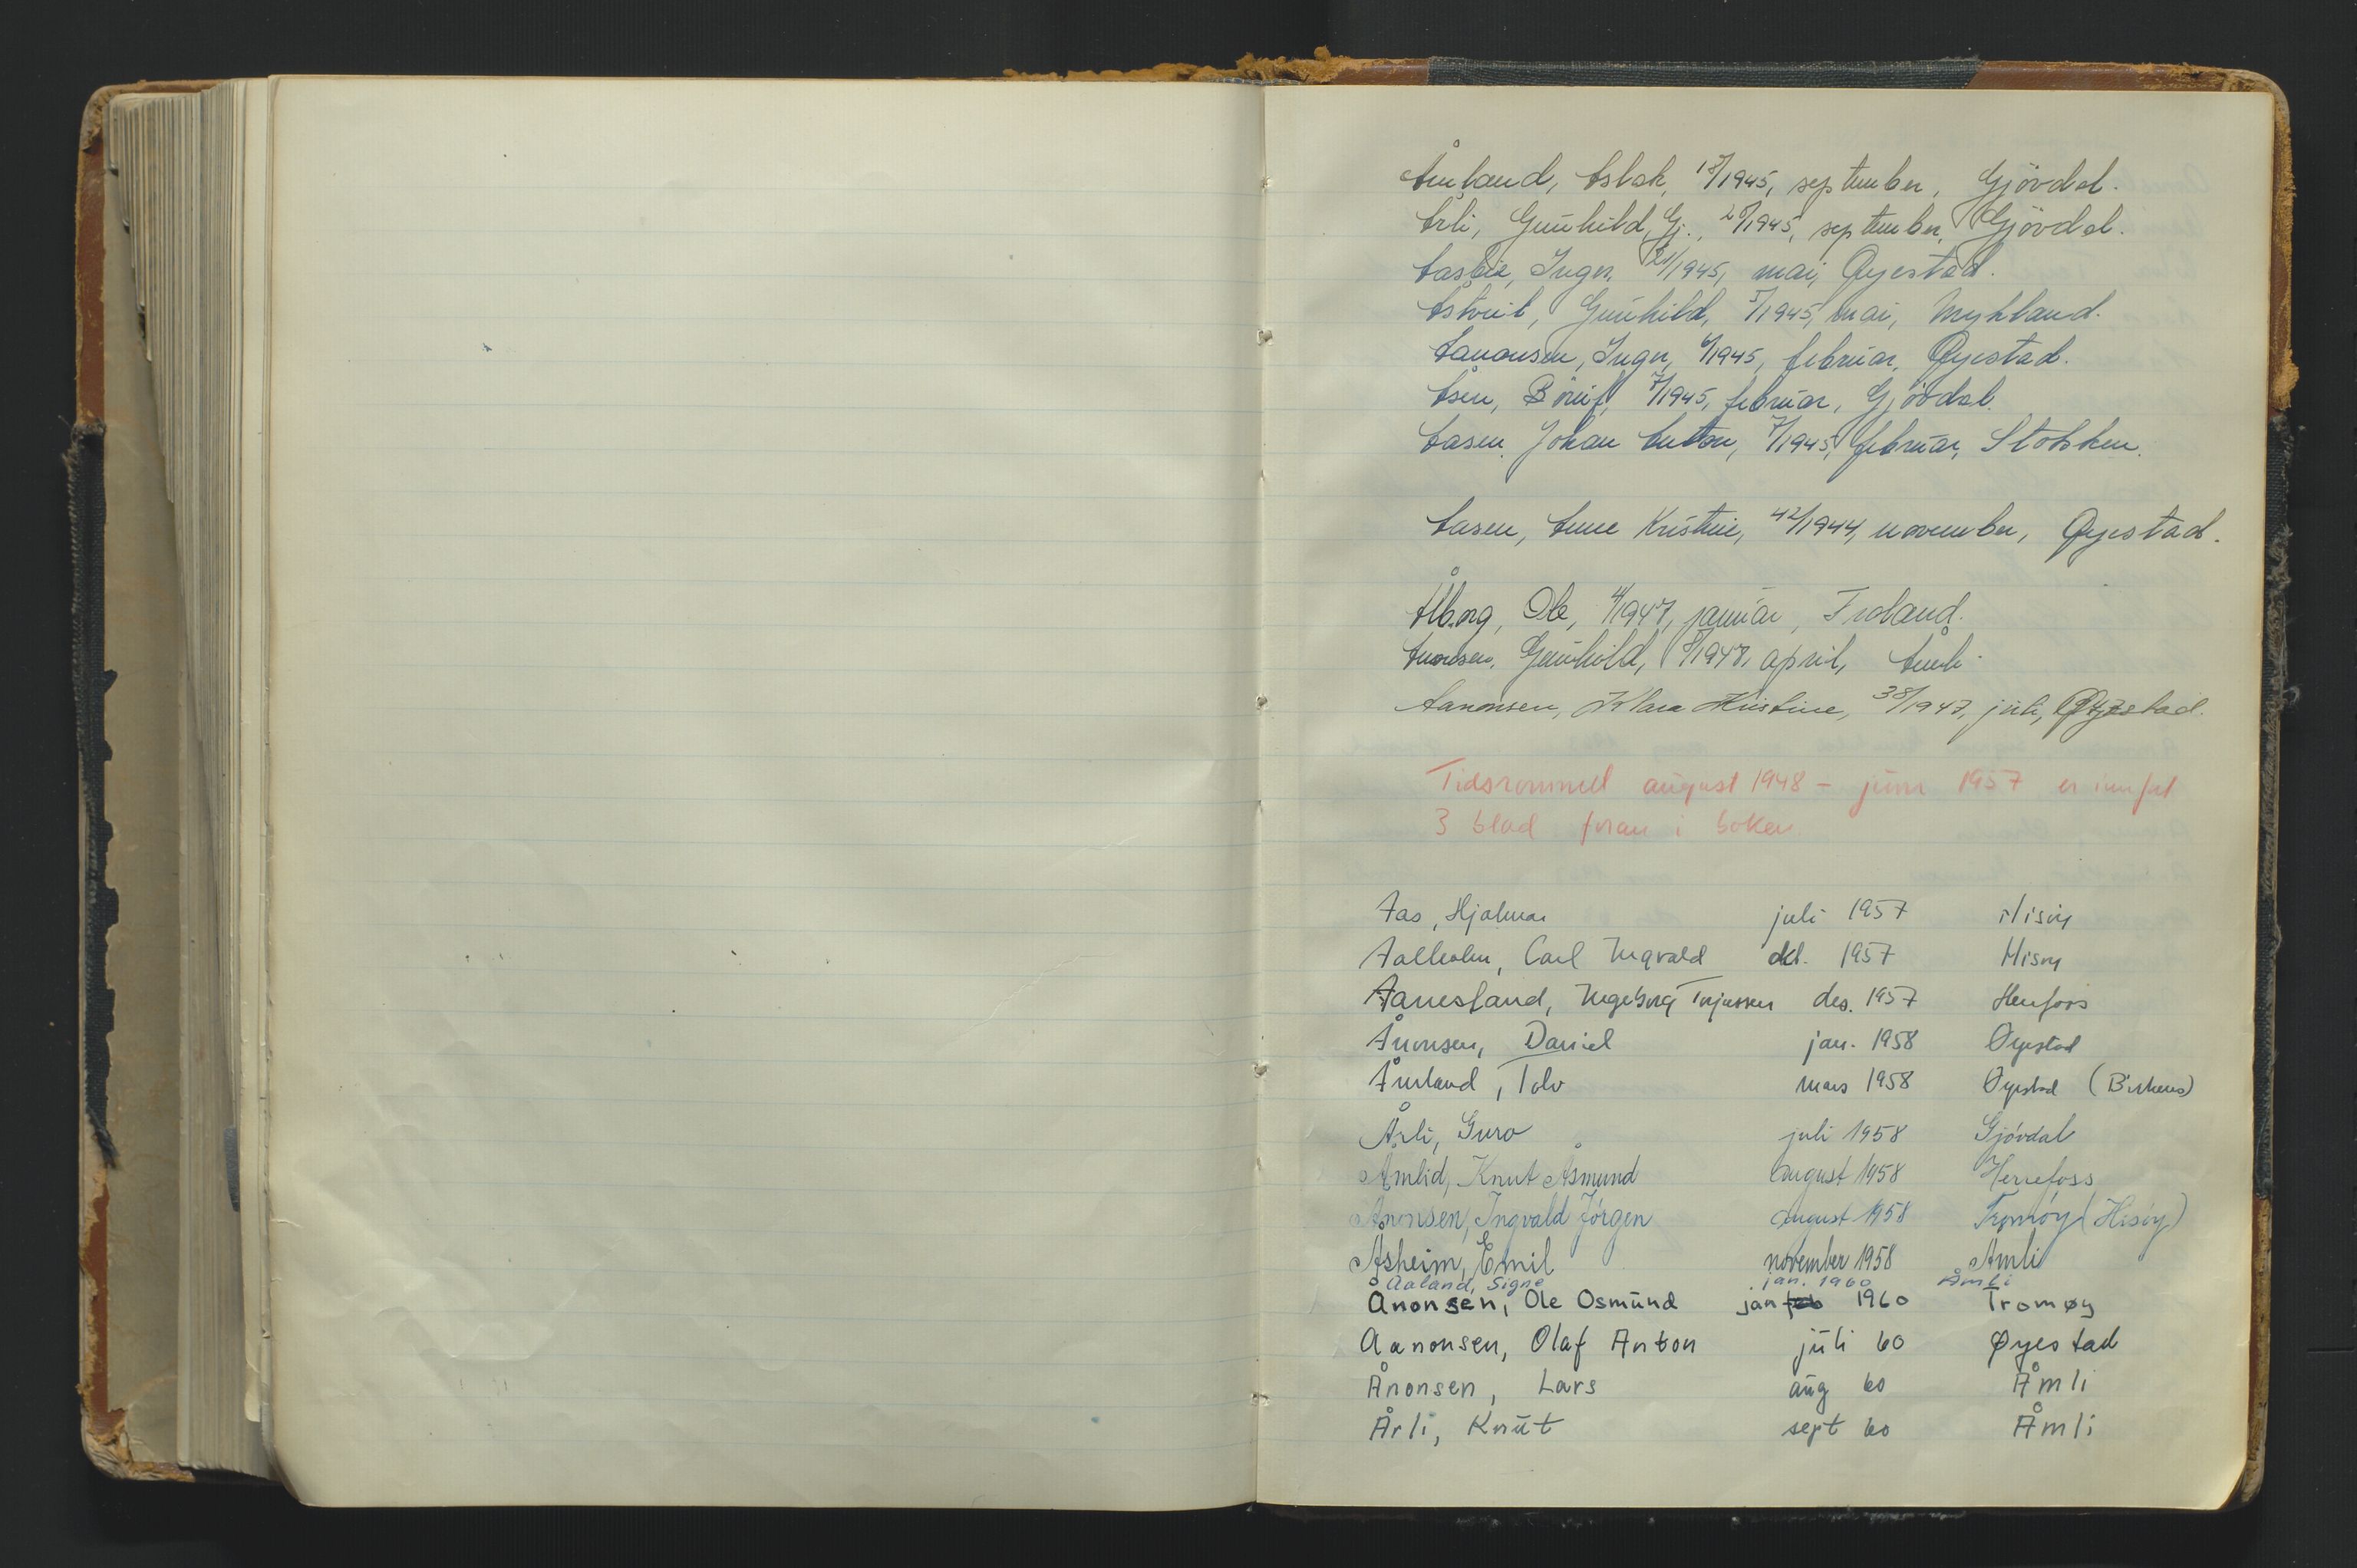 Åmland, Aslak, 18/1945, september, Gjövdal.
Årli, Gunhild, Gj., 20/1945, september, Gjövdal.
Aasbie, Inger, 21/1945, mai, Øyestad.
Åstveit, Gunhild, 5/1945, mai, Mykland.
Aanonsen, Inger, 6/1945, februar, Øyestad.
Åsen, 7/1945, februar, Gjövdal.
Aasen, Johan Anton, 7/1945, februar, Stokken.
Aasen, Anne Kristine, 42/1944, november, Øyestad.
Ålborg, Ole, 4/1947, januar, Froland.
Ånonsen, Gunhild, 8/1947, april, Åmli.
Aanonsen, Klara Kristine, 38/1947, juli, Øyestad.
Tidsrommet august 1948 - juni 1957 er innført
3 blad foran i boken
Aas, Hjalmar juli 1957 Hisöy
Aalholm, Carl Ingvald okt. 1957 Hisøy
Aanesland, Ingeborg Terjesen des. 1957 Herefoss
Ånonsen, Daniel jan. 1958 Øyestad
Åmland, Tolv mars 1958 Øyestad (Birkenes)
Årli, Guro juli 1958 Gjövdal
Åmlid, Knut Åsmund august 1958 Herrefoss
Ånonsen, Ingvald Jörgen august 1958 Tromöy (Hisöy)
Åsheim, Emil november 1958 Åmli
Aaland, Signe jan. 1960 Åmli
Ånonsen, Ole Osmund jan feb 1960 Tromøy
Aanonsen, Olaf Anton juli 60 Øyestad
Ånonsen, Lars aug 60 Åmli
Årli, Knut sept 60 Åmli